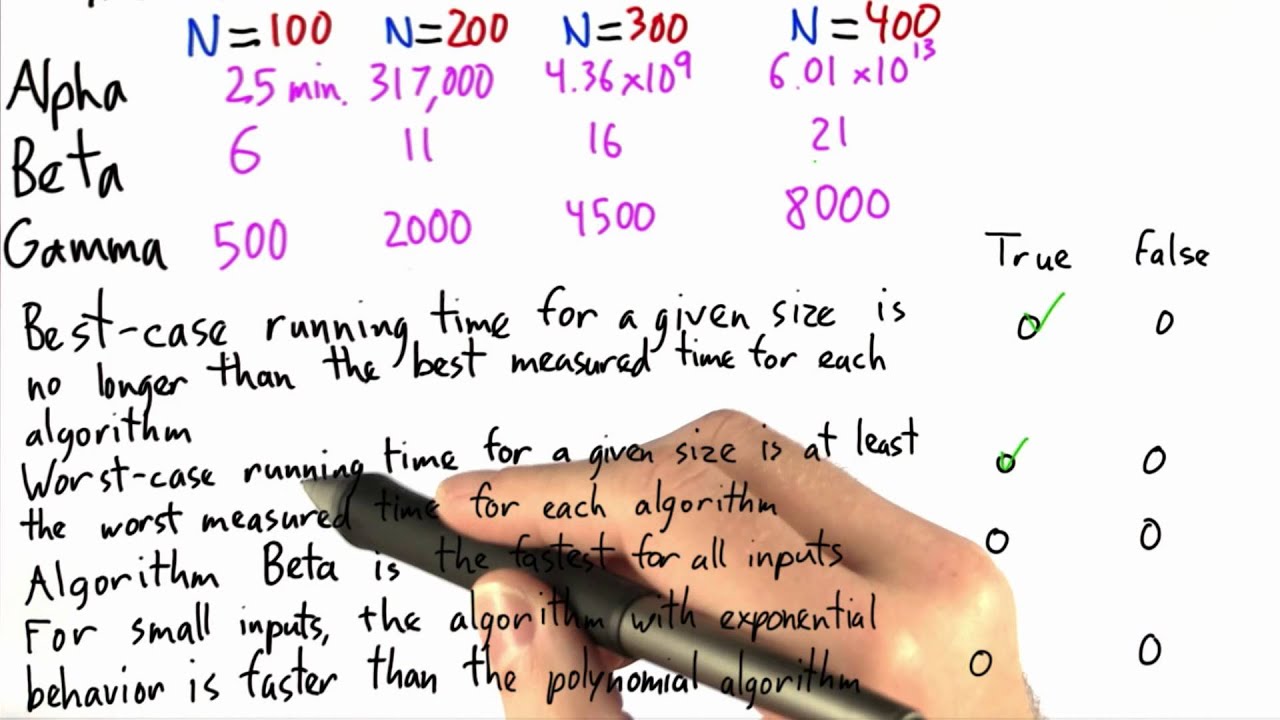 N=100 N=200 N=300 N=400
Alpha 25 min. 317,000 4.36×10⁹ 6.01×10¹³
Beta 6 11 16 21
Gamma 500 2000 4500 8000
True False
Best-case running time for a given size is
no longer than the best measured time for each
algorithm
Worst-case running time for a given size is at least
the worst measured time for each algorithm
Algorithm Beta is the fastest for all inputs
For small inputs, the algorithm with exponential
behavior is faster than the polynomial algorithm